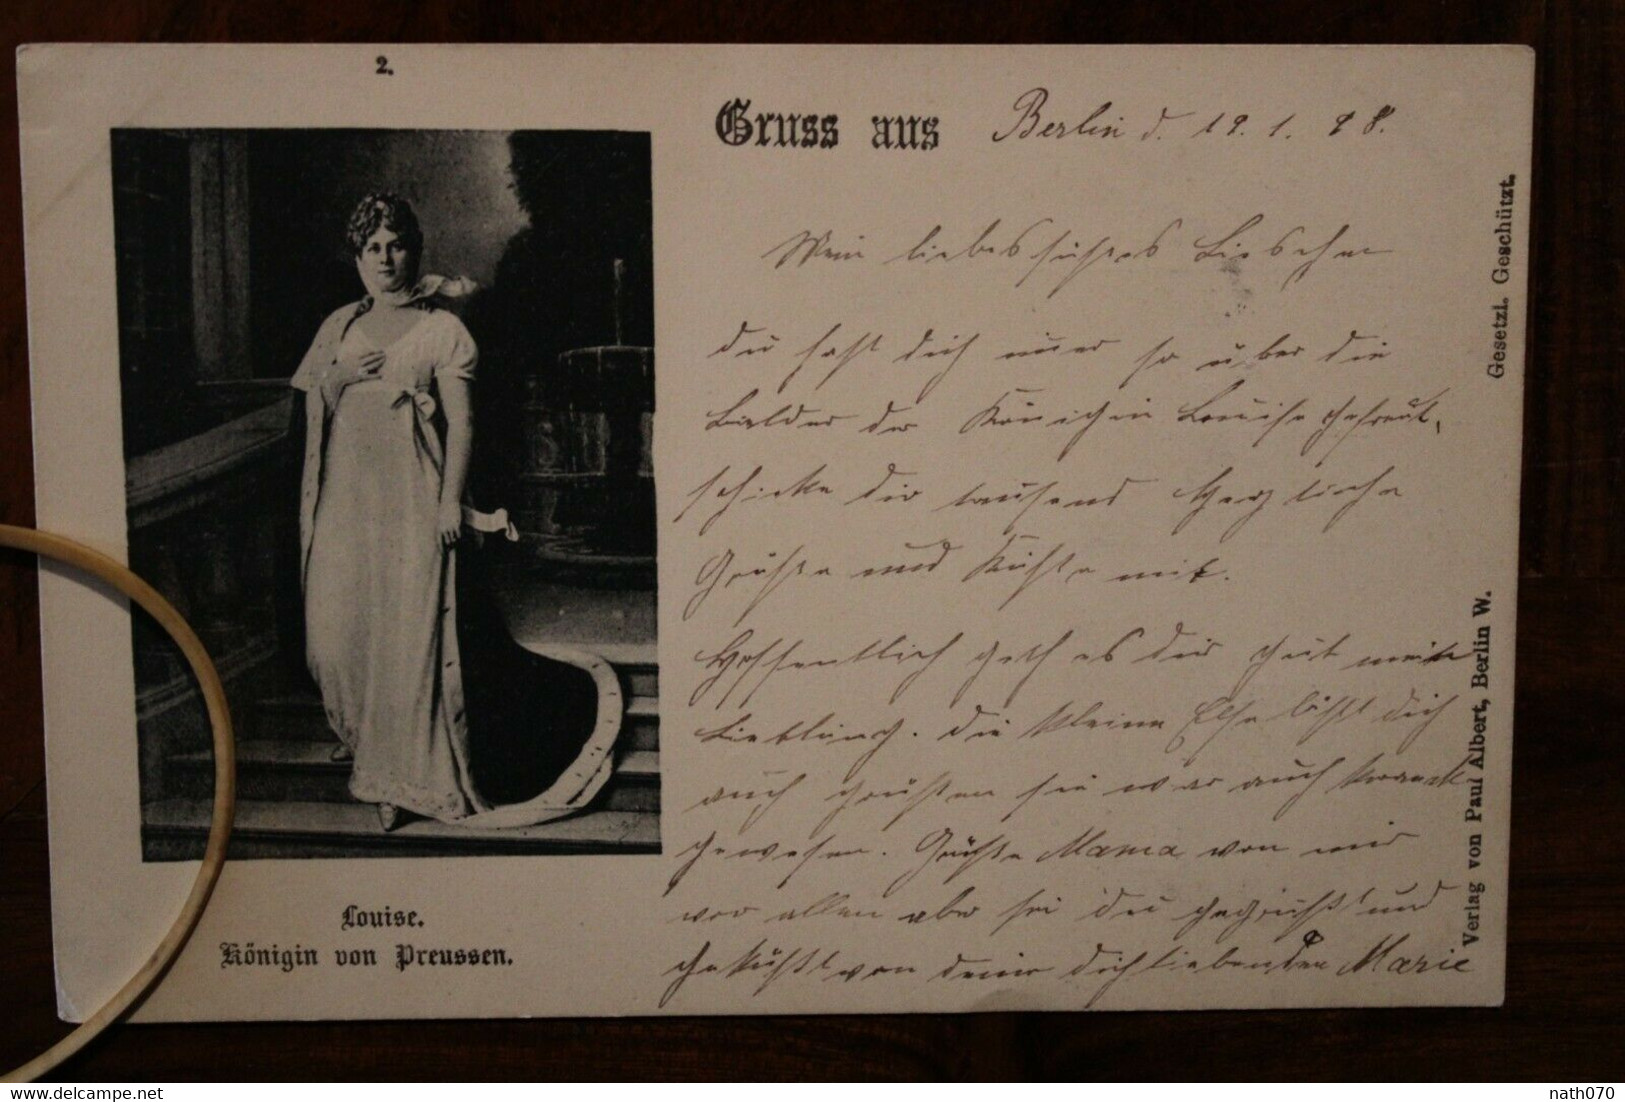 2.
Gruss aus Berlin d. 19. 1. 98.
Mein liebes süßes Lieschen
du hast dich immer so über die
Bilder der Königin Louise gefreut,
schicke dir tausend Herzliche
Grüße und Küße mit.
Hoffentlich geth es dir gut mein
Liebling. die kleine Else läßt dich
auch grüßen sie war auch krank
gewesen. Grüße Mama von mir
vor allen aber sei du gegrüßt und
geküßt von deiner dich liebenden Marie
Louise.
Königin von Preussen.
Gesetzl. Geschützt.
Verlag von Paul Albert, Berlin W.
delcampe.net
nath070